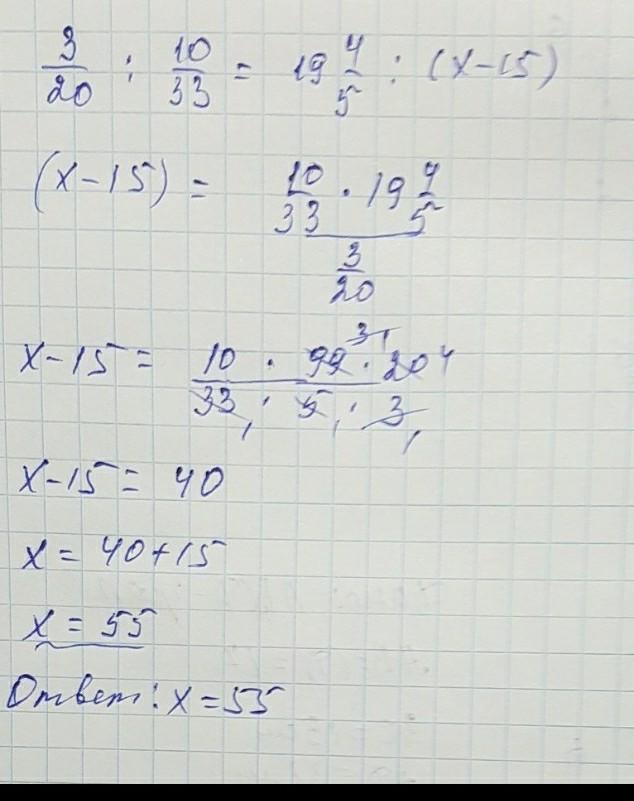 3/20 : 10/33 = 19 4/5 : (x-15)
(x-15) = (10/33 · 19 4/5) / (3/20)
x-15 = (10 · 99 3 1 · 20 4) / (33 1 · 5 1 · 3 1)
x-15 = 40
x = 40+15
x = 55
Ответ: x=55